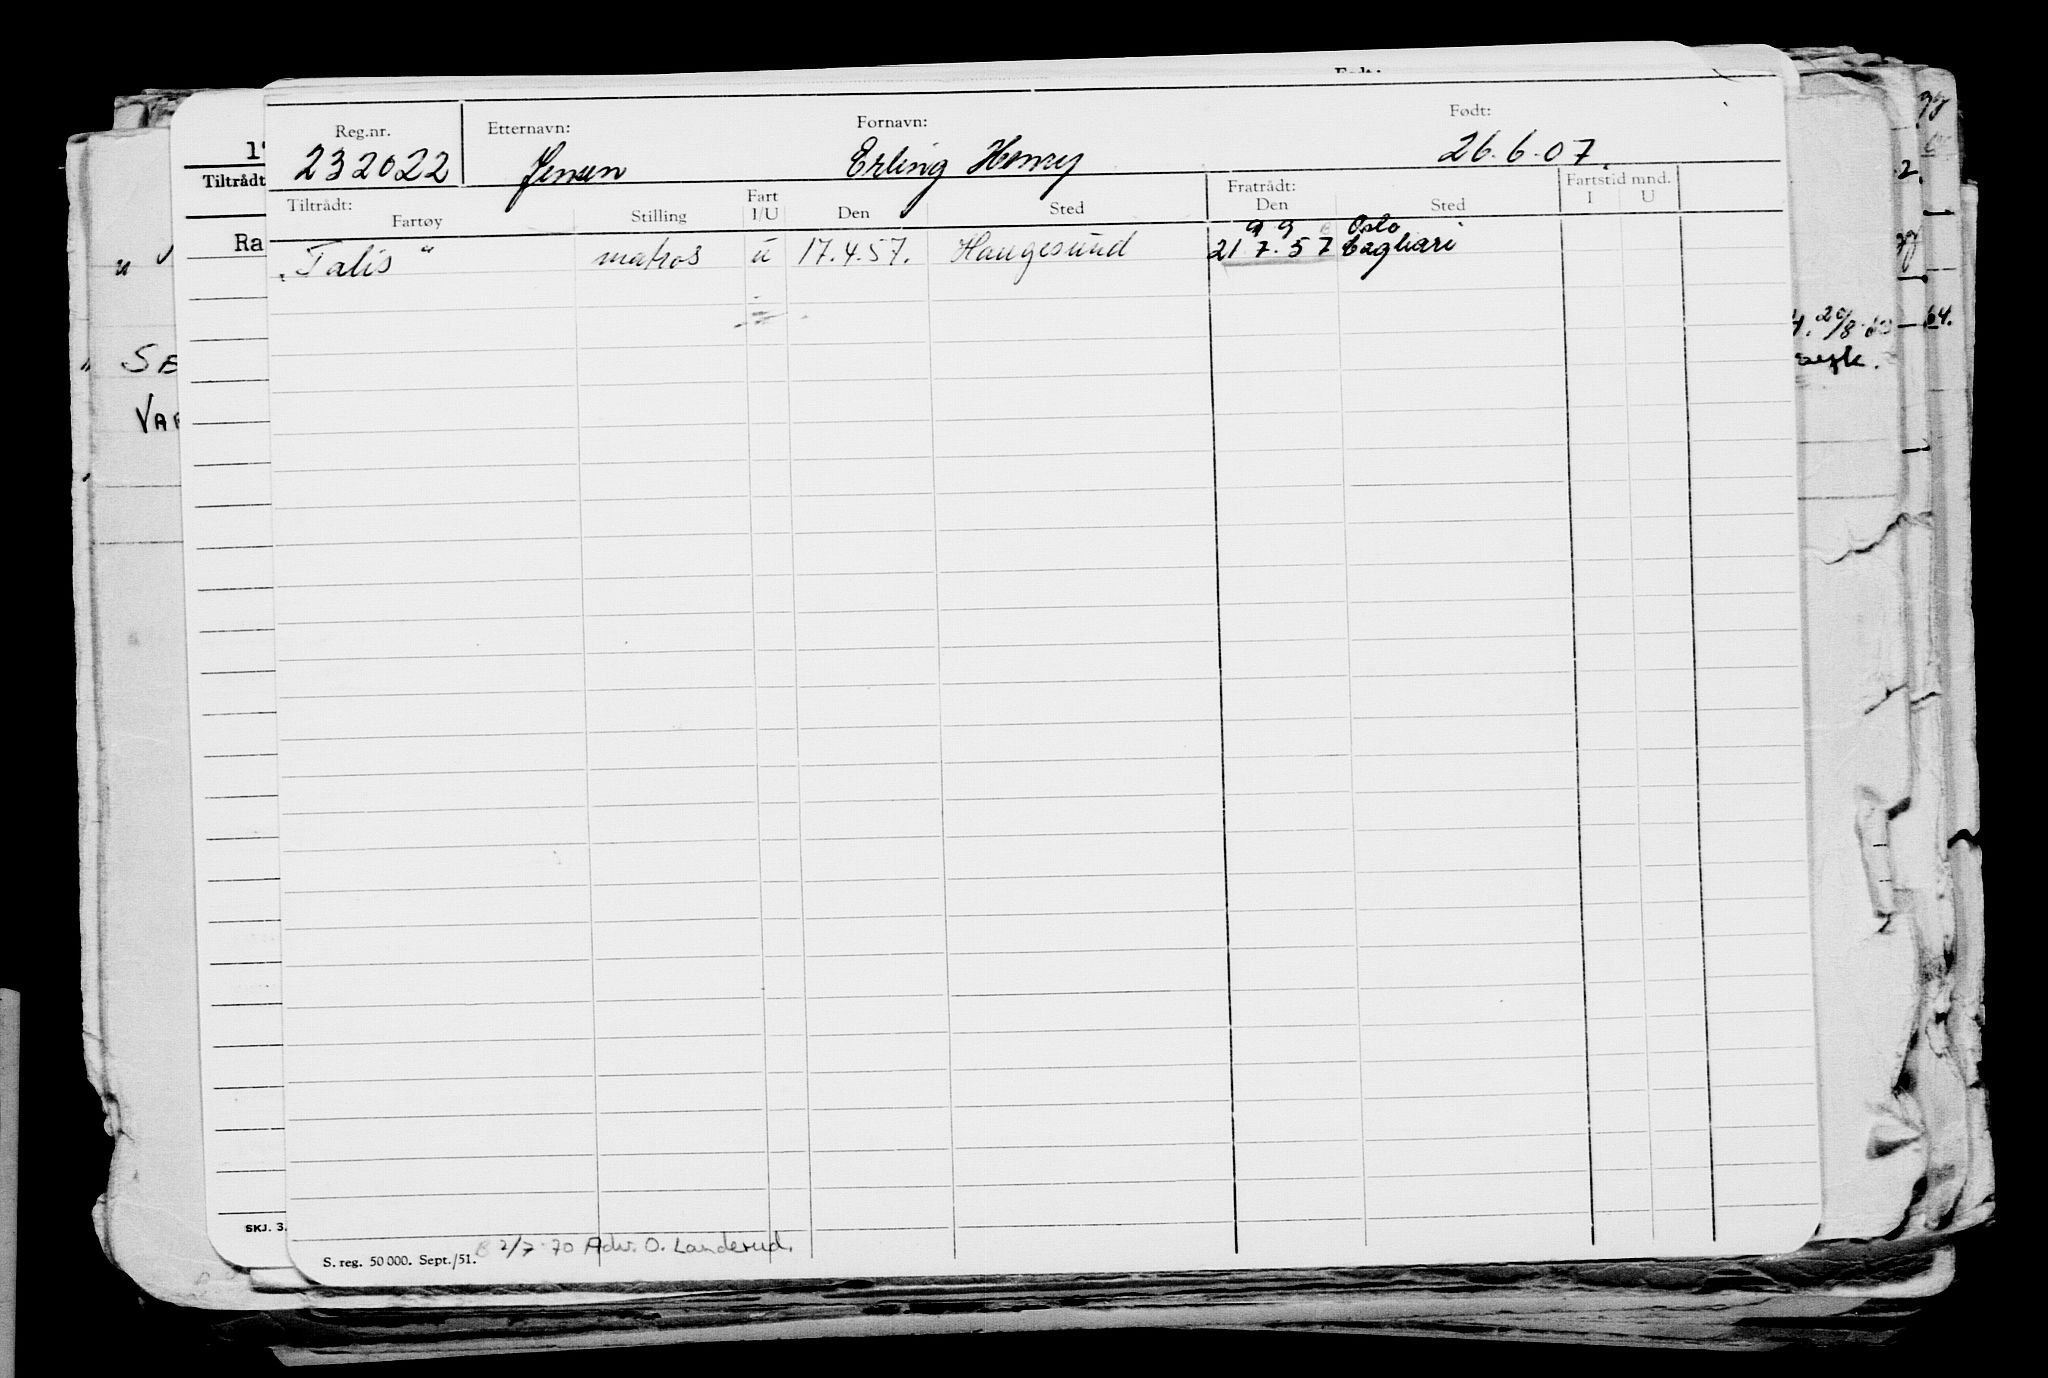 Født:
Reg.nr. Etternavn: Fornavn: Født:
232022 Jensen Erling Henry 26.6.07.
Tiltrådt: Fratrådt: Fartstid mnd.
Fartøy Stilling Fart I/U Den Sted Den Sted I U
9 9 Oslo
„Talis“ matros u 17.4.57. Haugesund 21.7.57 Cagliari
S. reg. 50 000. Sept./51. B 2/7-70 Adv. O. Landerud.
Tiltrådt
Ra
SKJ. 3.
SE
VAR
20/8-60
64.